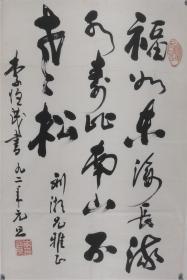 福如东海长流
水寿比南山不
老松
利湘兄雅正
李恒茂书 九二年元旦